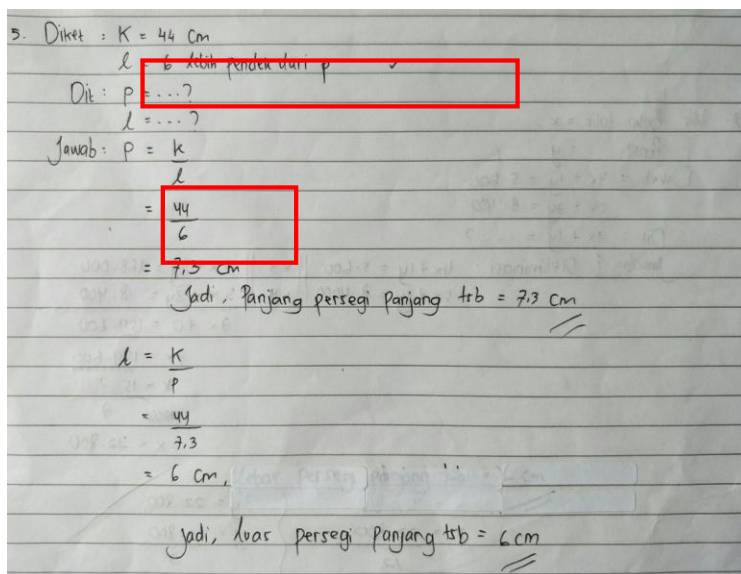 5. Diket : K = 44 Cm
l = 6 lebih pendek dari p
Dit : p = ...?
l = ...?
Jawab : p = k
l
= 44
6
= 7,3 cm
Jadi, Panjang persegi panjang tsb = 7,3 cm
l = K
p
= 44
7,3
= 6 cm,
Jadi, luas persegi panjang tsb = 6 cm